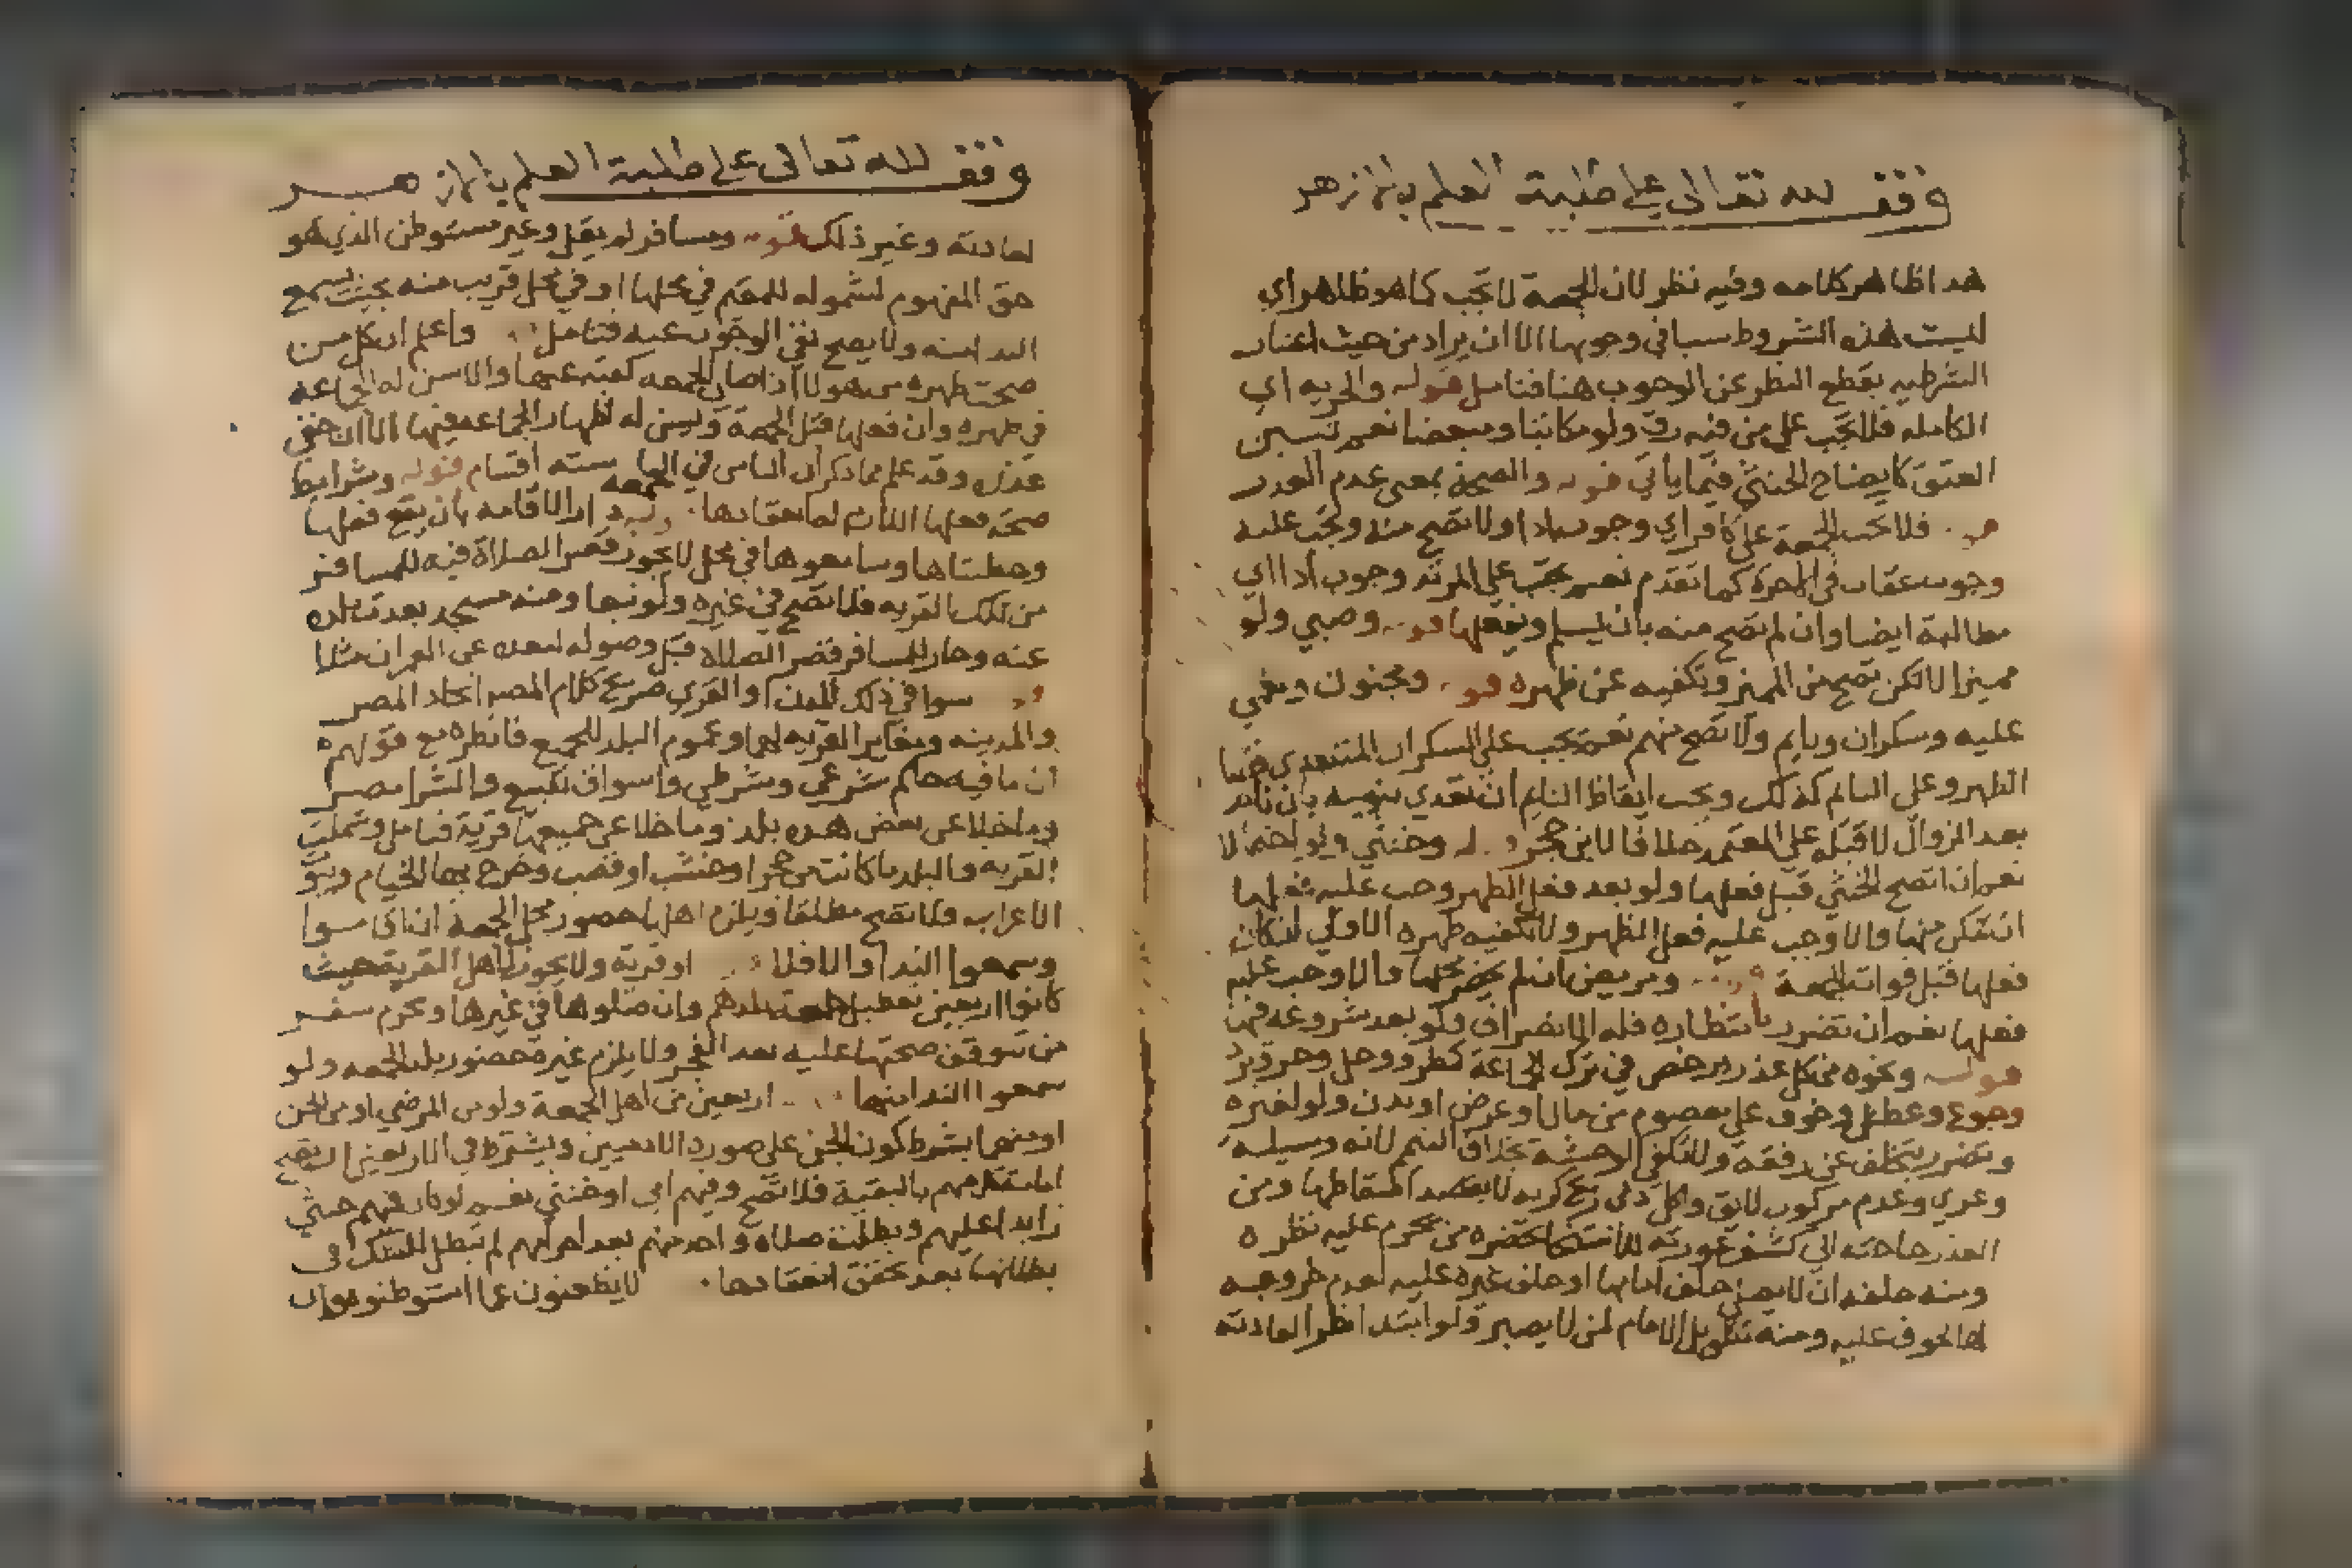 وقف لله تعالى على طلبة العلم بالازهر
هذا ظاهر كلامه وفيه نظر لان الجمعة لا تجب كما هو ظاهر اي
ليست هذه الشروط سببا في وجوبها الا ان يراد من حيث اعتبار
الشرطيه بقطع النظر عن الوجوب هنا فتامل قوله والحريه اي
الكامله فلا تجب على من فيه رق ولو مكاتبا ومبعضا نعم تسن
العتق كايضاح الخنثى فيما يأتي قوله والصحة بمعنى عدم العذر
فلا تجب الجمعة على كافر اي وجوب اداء ولا تصح منه وتجب عليه
وجوب عقاب في الاخرة كما تقدم نعم تجب على المرتد وجوب اداء اي
مطالبة ايضا وان لم تصح منه بان يسلم ويفعلها قوله وصبي ولو
مميزا لكن تصح من المميز وتكفيه عن ظهره قوله ومجنون ومغمي
عليه وسكران ونايم ولا تصح منهم نعم تجب على السكران المتعدي
الظهر وعلى النايم كذلك ويجب ايقاظ النايم ان تعدي بنومه بان نام
بعد الزوال لا قبله على المعتمد خلافا لابن حجر قوله وخنثى ولو احتمالا
نعم ان اتضح الخنثى قبل فعلها ولو بعد فعل الظهر وجب عليه فعلها
ان تمكن منها والا وجب عليه فعل الظهر ولا يكفيه ظهره الاولى لو كان
فعلها قبل فوات الجمعة ومريض ان لم يحضر محلها والا وجب عليه
فعلها نعم ان تضرر بانتظاره فله الانصراف ولو بعد شروعه فيها
قوله ونحوه من كل عذر مرخص في ترك الجماعة كمطر ووحل وحر وبرد
وجوع وعطش وخوف على معصوم من مال او عرض او بدن ولو لغيره
وتضرر بتخلف عن رفقة ولا تكفي الوحشة بخلاف التيمم لانه وسيلة
وعري وعدم مركوب لائق واكل ذي ريح كريه لا بقصد اسقاطها ومن
العذر حاجته الى كشف عورته للاستنجا بحضرة من يحرم عليه نظره
ومنه حلفه ان لا يصلي خلف امامها او حلف غيره عليه لعدم خروجه
لها لخوف عليه ومنه تطويل الامام لمن لا يصبر ولو ابتداء نظرا لعادته
وقف لله تعالى على طلبة العلم بالازهر
لعادته وغير ذلك قوله ومسافر لم يقل وغير مستوطن الذي هو
حق المفهوم لشموله للمقيم في محلها او في محل قريب منه بحيث يسمع
النداء منه ولا يصح نفي الوجوب عنه فتامل واعلم ان كل من
صحت ظهره من هولاء اذا صلى الجمعه كفته عنها والا سن له الجماعه
في ظهره وان فعلها قبل الجمعة ويسن له اظهار الجماعه فيها الا ان خفي
عذره وقد علم مما ذكر ان الناس في الجمعه سته اقسام قوله وشرائط
صحة فعلها دار الاقامه بان يقع فعلها
وخطبتاها وسامعوها في محل لا يجوز قصر الصلاة فيه للمسافر
من تلك القريه فلا تصح في غيره ولو تبعا ومنه مسجد بعدت بلده
عنه وجاز للمسافر قصر الصلاة قبل وصوله لبعده عن العمران مثلا
سوا في ذلك المدن والقرى صريح كلام المصنف اتحاد المصر
والمدينه ومغايرة القريه لهما وعموم البلد للجميع فانظره مع قولهم
ان ما فيه حاكم شرعي وشرطي واسواق للبيع والشرا مصر
وما خلا عن بعض هذه بلد وما خلا عن جميعها قرية فتامل وشملت
القريه والبلد ما كانت من حجر او خشب او قصب وخرج بها الخيام وبيوت
الاعراب فلا تصح مطلقا ويلزم اهلها حضور محل الجمعة ان اقاموا
وسمعوا النداء والا فلا او قرية ولا يجوز لاهل القرية حيث
كانوا اربعين تعطيل الجمعة ببلدهم وان صلوها في غيرها ويحرم سفر
من تتوقف صحتها عليه بعد الفجر ولا يلزم غيره حضور بلد الجمعه ولو
سمعوا النداء منها اربعين من اهل الجمعة ولو من المرضى او من الجن
او منهما بشرط كون الجن على صورة الادميين ويشترط في الاربعين ان تصح
امامة كل منهم بالبقية فلا تصح وفيهم امي او خنثى نعم لو كان فيهم خنثى
زايدا عليهم وبطلت صلاة واحد منهم بعد احرامهم لم تبطل للشك في
بطلانها بعد تحقق انعقادها لا يظعنون عما استوطنوه